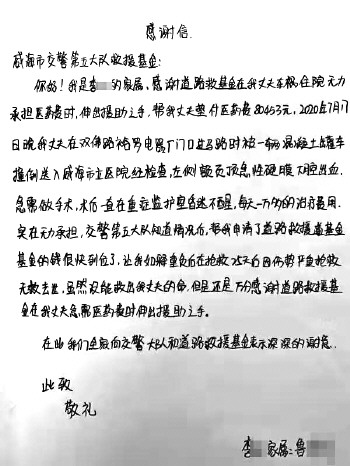 感谢信
威海市交警第五大队救援基金:
你好!我是李 的家属,感谢道路救援基金在我丈夫车祸住院无力
承担医药费时,伸出援助之手,帮我丈夫垫付医药费80453元,2020年7月17
日晚我丈夫在双伟路 电 厂门口 马路时被一辆混凝土罐车
撞倒送入威海市立医院经检查,左侧额 顶急性硬膜下 出血
急需做手术,术后一直在重症监护室昏迷不醒,每天一万多的治疗费用
实在无力承担,交警第五大队知道情况后,帮我申请了道路救援基金
基金的钱很快到位了,让我 在抢救 天后因伤势严重抢救
无效去世,虽然没能救出我丈夫的命,但是还是万分感谢道路救援基
金在我丈夫急需医药费时伸出援助之手。
在此我们全家向交警大队和道路救援基金表示深深的谢意
此致
敬礼
李 家属:鲁